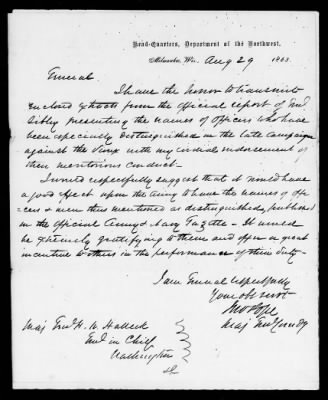 Head-Quarters, Department of the Northwest,
Milwaukee, Wis. Aug 29 1863.
General
I have the honor to transmit
enclosed extracts from the official report of Genl
Sibley presenting the names of officers who have
been especially distinguished in the late campaign
against the Sioux with my cordial endorsement of
their meritorious conduct.
I would respectfully suggest that it would have
a good effect upon the army to have the names of offi-
cers & men thus mentioned as distinguished, published
in the Official Army & Navy Gazette. It would
be extremely gratifying to them and offer a great
incentive to others in the performance of their duty.
I am General respectfully
Your obt servt
Jno Pope
Maj Genl Comdg
Maj Genl H. W. Halleck
Genl in Chief
Washington